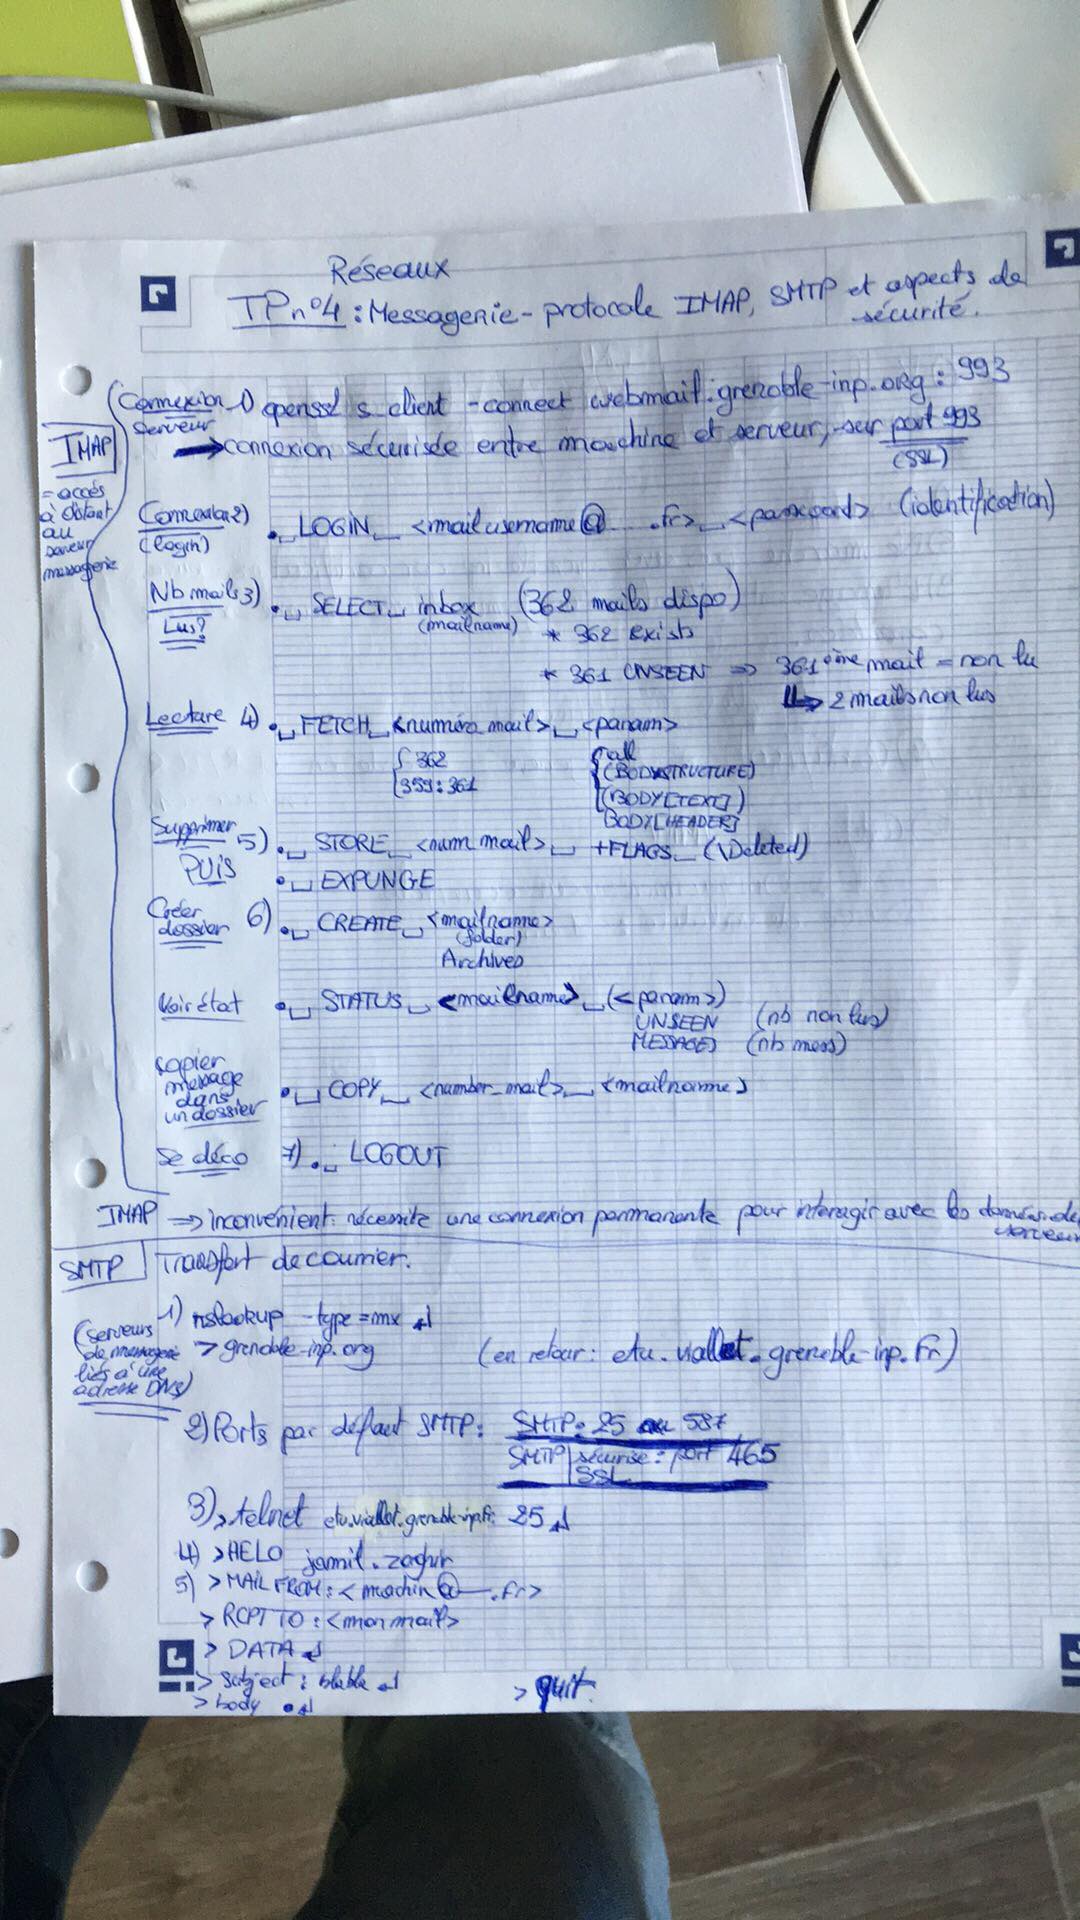 Réseaux
TP n°4 : Messagerie - protocole IMAP, SMTP et aspects de
sécurité.
IMAP
= accés
à distant
au
serveur
messagerie
Connexion 1) openssl s_client -connect webmail.grenoble-inp.org : 993
Serveur
→ connexion sécurisée entre machine et serveur, sur port 993
(SSL)
Connexion 2) . ␣ LOGIN ␣ <mail username@ .fr> ␣ <password> (identification)
(login)
Nb mails 3) . ␣ SELECT ␣ inbox (362 mails dispo)
Lus? (mailname) * 362 exists
* 361 UNSEEN ⇒ 361ème mail = non lu
↳ 2 mails non lus
Lecture 4) . ␣ FETCH ␣ <numéro_mail> ␣ <param>
{ 362 { all
359:361 (BODYSTRUCTURE)
(BODY[TEXT])
BODY[HEADER]
Supprimer 5) . ␣ STORE ␣ <num mail> ␣ +FLAGS ␣ (\Deleted)
PUIS . ␣ EXPUNGE
Créer 6) . ␣ CREATE ␣ <mailname>
dossier (folder)
Archives
Voir état . ␣ STATUS ␣ <mailname> ␣ (<param>)
UNSEEN (nb non lus)
MESSAGES (nb mess)
copier
message
dans . ␣ COPY ␣ <number_mail> ␣ <mailname>
un dossier
Se déco 7) . ␣ LOGOUT
IMAP ⇒ inconvénient: nécessite une connexion permanante pour interagir avec les données de
serveur
SMTP Transfert de courrier.
1) nslookup -type=mx ↲
(serveurs
de messagerie > grenoble-inp.org (en retour: etu.viallet.grenoble-inp.fr)
liés à une
adresse DNS)
2) Ports par défaut SMTP: SMTP: 25 ou 587
SMTP sécurisé : port 465
SSL
3) > telnet etu.viallet.grenoble-inp.fr 25 ↲
4) > HELO jamil.zaghir
5) > MAIL FROM: <machin@ .fr>
> RCPT TO : <mon mail>
> DATA ↲
> subject : blabla ↲
> body . ↲ > quit.